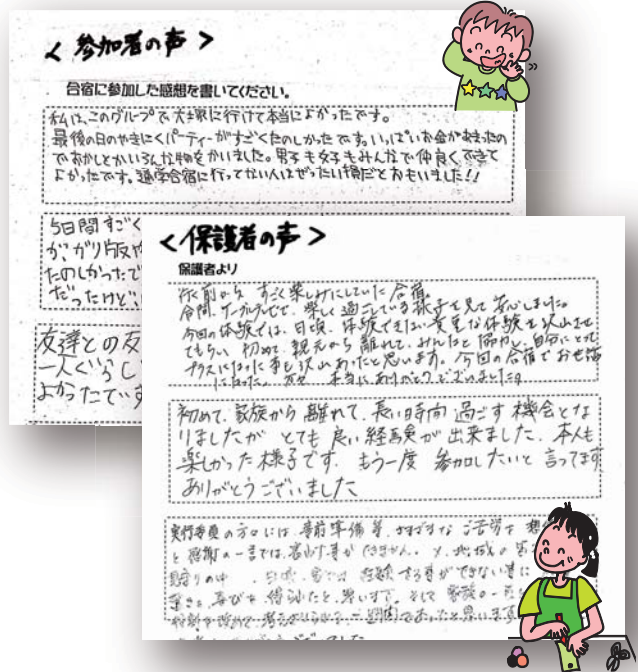 ＜参加者の声＞
合宿に参加した感想を書いてください。
私は、このグループで大塚に行けて本当によかったです。
最後の日のやきにくパーティーがすごくたのしかったです。いっぱいお金があまったの
でおかしとかいろんな物をかいました。男子も女子もみんなで仲良くできて
よかったです。通学合宿に行ってない人はぜったい損だとおもいました!!
5日間すごく
が、ガリ版や
たのしかったで
だったけど、
友達との友
一人ぐらし
よかったです
＜保護者の声＞
保護者より
前から すごく楽しみにしていた合宿
楽しく過ごしている様子を見て安心しました
今回の体験では、日頃、体験できない貴重な体験を沢山させ
てもらい 初めて親元から離れて、みんなと協力し、自分にとって
プラスになった事も沢山あったと思います。今回の合宿でお世話
になった 方々 本当にありがとうございました。
初めて、家族から離れて、長い時間過ごす機会とな
りましたが とても良い経験が出来ました。本人も
楽しかった様子です。もう一度 参加したいと言ってます
ありがとうございました
実行委員の方々には、事前準備等、さまざまなご苦労を
と感謝の一言では、表す事ができません。又、地域の
できない事に
思います。そして 家族の
一週間であったと思います